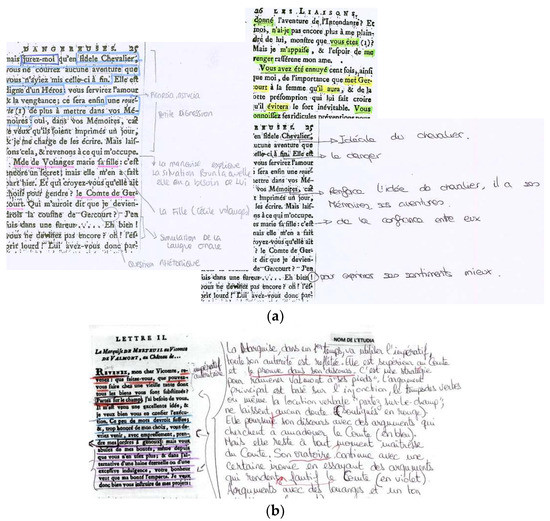 DANGEREUSES. 25
mais jurez-moi qu'en fidele Chevalier,
vous ne courrez aucune aventure que
vous n'ayiez mis celle-ci à fin. Elle est
digne d'un Héros: vous servirez l'amour
& la vengeance; ce sera enfin une rouë-
rie (1) de plus à mettre dans vos Mé-
moires: oui, dans vos Mémoires, car
je veux qu'ils soient imprimés un jour,
& je me charge de les écrire. Mais lais-
sons cela, & revenons à ce qui m'occupe.
Mde de Volanges marie sa fille: c'est
encore un secret; mais elle m'en a fait
part hier. Et qui croyez-vous qu'elle ait
choisi pour gendre? le Comte de Ger-
court. Qui m'auroit dit que je devien-
drois la cousine de Gercourt? J'en
suis dans une fureur..... Eh bien!
vous ne devinez pas encore? oh! l'es-
prit lourd! Lui avez-vous donc par-
Petite digression
La marquise explique
la situation pour laquelle
elle a besoin de lui
La fille (Cécile Volanges)
Simulation de la
langue orale
question rhétorique
26 LES LIAISONS
donné l'aventure de l'Intendante? Et
moi, n'ai-je pas encore plus à me plain-
dre de lui, monstre que vous êtes (1)?
Mais je m'appaise, & l'espoir de me
venger rasserene mon ame.
Vous avez été ennuyé cent fois, ainsi
que moi, de l'importance que met Ger-
court à la femme qu'il aura, & de la
sotte présomption qui lui fait croire
qu'il évitera le sort inévitable. Vous
connoissez ses ridicules préventions pour
EREUSES. 25
n fidele Chevalier,
ne aventure que
elle-ci à fin. Elle est
us servirez l'amour
era enfin une rouë-
ttre dans vos Mé-
vos Mémoires, car
t imprimés un jour,
s écrire. Mais laif-
s à ce qui m'occupe.
rie sa fille: c'est
mais elle m'en a fait
royez-vous qu'elle ait
? le Comte de Ger-
oit dit que je devien-
de Gercourt? J'en
ur..... Eh bien!
ous ne devinez pas encore? oh! l'es-
prit lourd! Lui avez-vous donc par-
Idée du chevalier.
Le danger
Renforce l'idée du chevalier, il a ses
Mémoires ses aventures.
de la confiance entre eux
pour exprimer ses sentiments mieux.
(a)
LETTRE II.
La Marquise de MERTEUIL au Vicomte
de VALMONT, au Château de...
REVENEZ, mon cher Vicomte, re-
venez: que faites-vous, que pouvez-
vous faire chez une vieille tante dont
tous les biens vous sont substitués?
Partez sur le champ; j'ai besoin de vous.
Il m'est venu une excellente idée, &
je veux bien vous en confier l'exécu-
tion. Ce peu de mots devroit suffire;
&, trop honoré de mon choix, vous de-
vriez venir, avec empressement, pren-
dre mes ordres à genoux: mais vous
abusez de mes bontés, même depuis
que vous n'en usez plus; & dans l'al-
ternative d'une haine éternelle ou d'une
excessive indulgence, votre bonheur
veut que ma bonté l'emporte. Je veux
donc bien vous instruire de mes projets:
impératif
NOM DE L'ETUDIA
La Marquise, dans un 1er temps, va utiliser l'impératif,
toute son autorité est reflétée. Elle est supérieure au Comte
et le prouve dans son discours. C'est une stratégie
pour ramener Valmont à ses pieds. L'argument
principal est basé sur l'injonction, le temps des verbes
ou même la location verbale "partez sur-le-champ"
ne laissent aucun doute (soulignés en rouge).
Elle poursuit son discours avec des arguments qui
cherchent à amadouer le Comte (en bleu).
Mais elle reste à tout moment maîtresse
du Comte. Son oratoire continue avec une
certaine ironie en essayant des arguments
qui rendent fautif le Comte (en violet)
Arguments avec des louanges et un ton
(b)